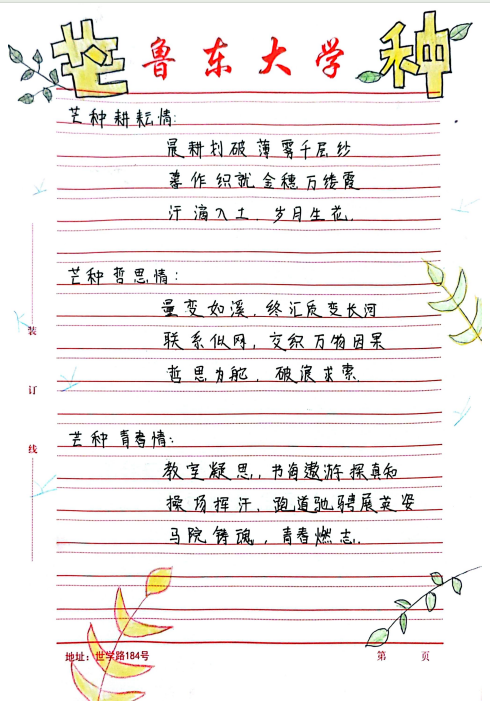 芒 鲁东大学 种
芒种耕耘情:
晨耕划破薄雾千层纱
暮作织就金穗万缕霞
汗滴入土，岁月生花.
芒种哲思情:
量变如溪，终汇质变长河
联系似网，交织万物因果
哲思为舵，破浪求索
装
订
芒种青春情:
线
教室凝思，书海遨游探真知
操场挥汗，跑道驰骋展英姿
马院铸魂，青春燃志.
地址：世学路184号
第 页